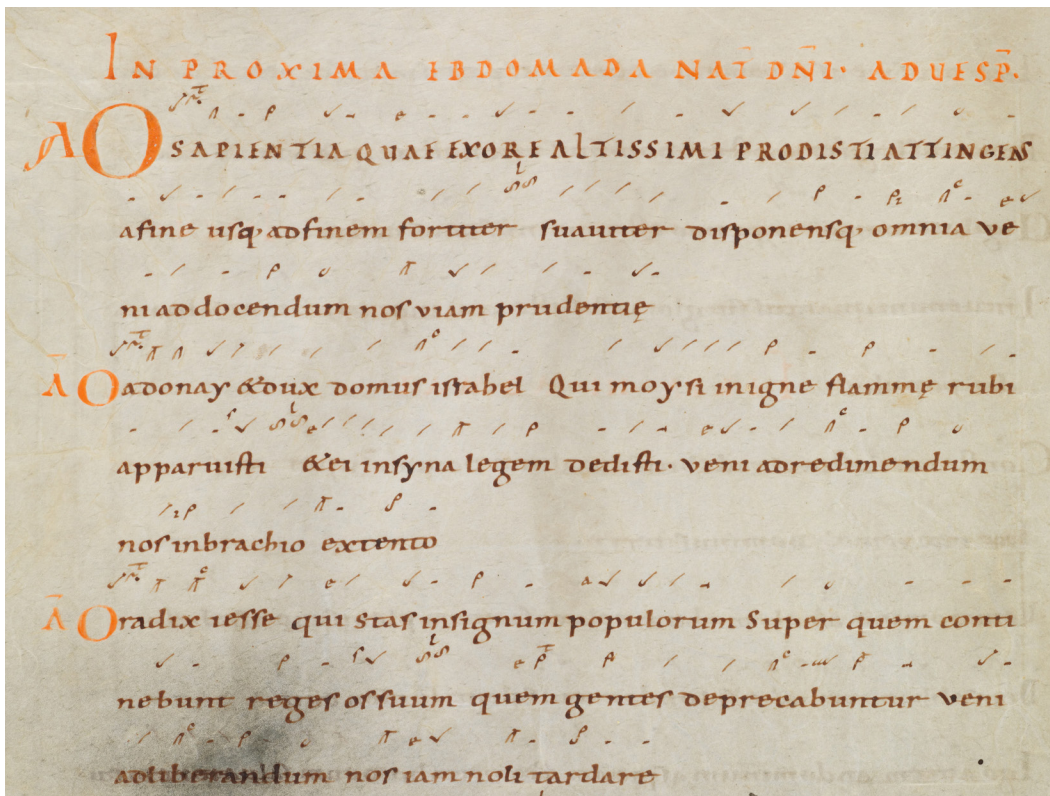 IN PROXIMA EBDOMADA NAT̄ DN̄I· ADUESP̄·
Ā O SAPIENTIA QUAE EXORE ALTISSIMI PRODISTI ATTINGENS
afine usq; adfinem fortiter suauiter disponensq; omnia ve
ni addocendum nos viam prudentię
Ā O adonay &dux domus israhel Qui moysi inigne flammę rubi
apparuisti &ei insyna legem dedisti· veni adredimendum
nos inbrachio extento
Ā O radix iesse qui stas insignum populorum Super quem conti
nebunt reges os suum quem gentes deprecabuntur veni
adliberandum nos iam noli tardare